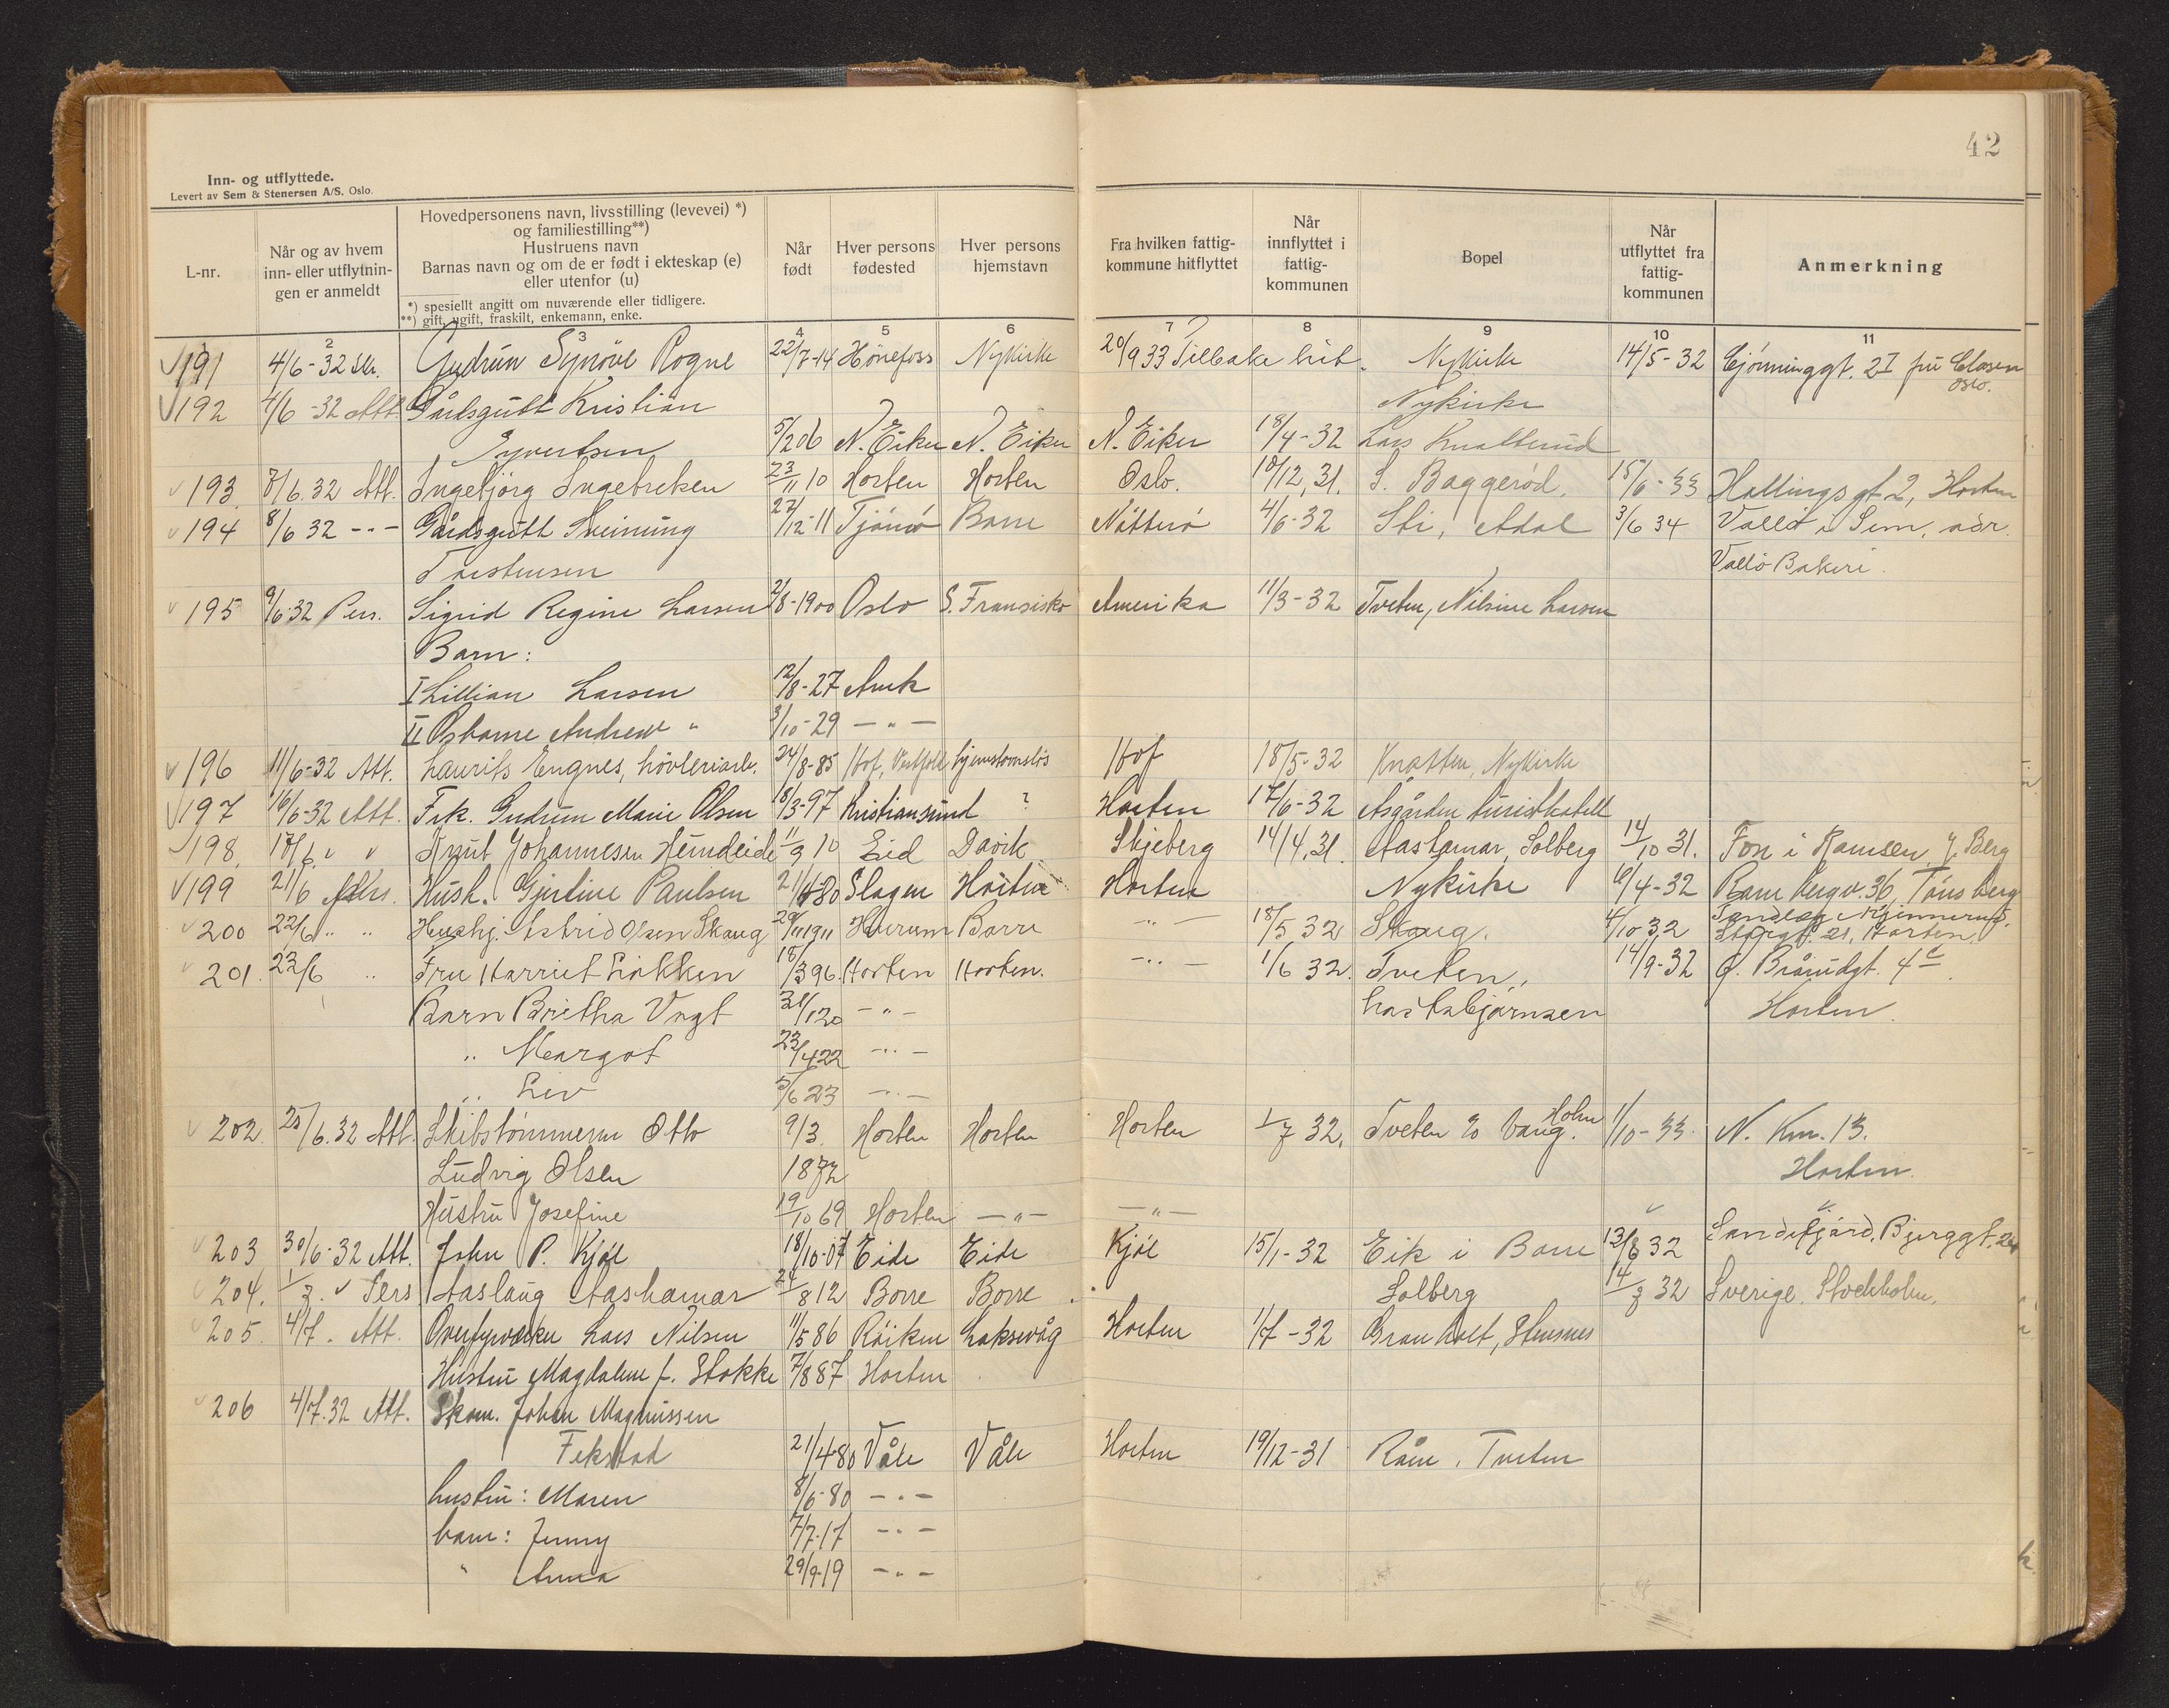 42
Inn- og utflyttede.
Levert av Sem & Stenersen A/S. Oslo.
L-nr. Når og av hvem inn- eller utflytnin- gen er anmeldt Hovedpersonens navn, livsstilling (levevei) *) og familiestilling**) Hustruens navn Barnas navn og om de er født i ekteskap (e) eller utenfor (u) Når født Hver persons fødested Hver persons hjemstavn Fra hvilken fattig- kommune hitflyttet Når innflyttet i fattig- kommunen Bopel Når utflyttet fra fattig- kommunen Anmerkning
*) spesiellt angitt om nuværende eller tidligere.
**) gift, ugift, fraskilt, enkemann, enke.
2 3 4 5 6 7 8 9 10 11
191 4/6-32 Gudrun Synöve Rogne 22/7-14 Hönefoss Nykirke 20/9 33 Tilbake hit. Nykirke 14/5-32 2I Oslo.
192 4/6-32 Att. Gårdsgutt Kristian Nykirke
Syvertsen 5/2 06 N. Eiker N. Eiker N. Eiker 18/4-32 Lars Knatterud
193 7/6.32 Att. Ingebjörg Ingebretsen 23/11 10 Horten Horten Oslo. 10/12,31. S. Baggeröd. 15/6-33 Hallingsgt 2, Horten
194 8/6 32 -"- Gårdsgutt Sveinung 27/12-11 Tjömö Borre Nötterö 4/6-32 Sti, Adal 3/6 34 Vallö i Sem, adr.
Torstensen Vallö Bakeri.
195 9/6-32 Pers. Sigrid Regine Larsen 2/8-1900 Oslo S. Fransisko Amerika 11/3-32 Tveten, Nilsine Larsen
Barn:
I Lillian Larsen 12/8-27 Amk
II Osborne Andrew " 3/10-29 -"-
196 11/6-32 Att. Laurits Engnes, hövleriarb. 24/8-85 Hof, Vestfold hjemstavnslös Hof 18/5-32 Knatten, Nykirke
197 16/6-32 Att. Frk. Gudrun Marie Olsen 18/3-97 Kristiansund ? Horten 17/6-32 Åsgården turisthotell
198. 17/6 " " Knut Johannesen Heimdeide 11/9 10 Eid Davik Skjeberg 14/4,31. Aashamar, Solberg 14/10 31. Fon i Ramnes, J. Berg
199 21/6 Pers. Hush. Gjertine Paulsen 21/4-80 Slagen Horten Horten Nykirke 6/4-32 36, Tönsberg
200 22/6 " " Hushj. Astrid Olsen Skaug 29/11 1911 Hurum Borre -"- 18/5 32 Skaug. 4/10 32 Storgt. 21, Horten.
201. 22/6 " Fru Harriet Lökken 18/3 96. Horten Horten. -"- 1/6 32. Tveten, 14/9-32 Q. Bråundgt. 4c
Barn Britha Vogt 31/1 20 -"- Horten.
" Margot 23/4 22 -"-
" Liv 5/6 23 -"-
202. 25/6.32 Att. Skibstömmerm Otto 9/3. Horten Horten Horten 1/7 32. Tveten % Vang. Holm 1/10-33. N. Km. 13.
Ludvig Olsen 1872 Horten.
Hustru Josefine 19/10 69 Horten -"- -"-
203 30/6-32 Att. John P. Kjöl 18/10-07 Eide Eide Kjöl 15/1-32 Eik i Borre 13/8 32 Sandefjord. Bjerggt. 24
204. 1/7. " Pers Aaslaug Aashamar 24/8 12 Borre Borre Solberg 14/7 32 Sverige. Stockholm.
205. 4/7. Att. Lars Nilsen 11/5 86 Röiken Laksevåg Horten 1/7-32 Granholt, Stensnes
Hustru Magdalene f. Stokke 7/8 87 Horten
206 4/7.32 Att. Skom. Johan Magnussen
Fekstad 21/4-80 Våle Våle Horten 19/12-31 Råen, Tveten
hustru: Maren 8/6-80 -"-
barn: Jenny 7/7-17 -"-
" Anna 29/9-19 -"-